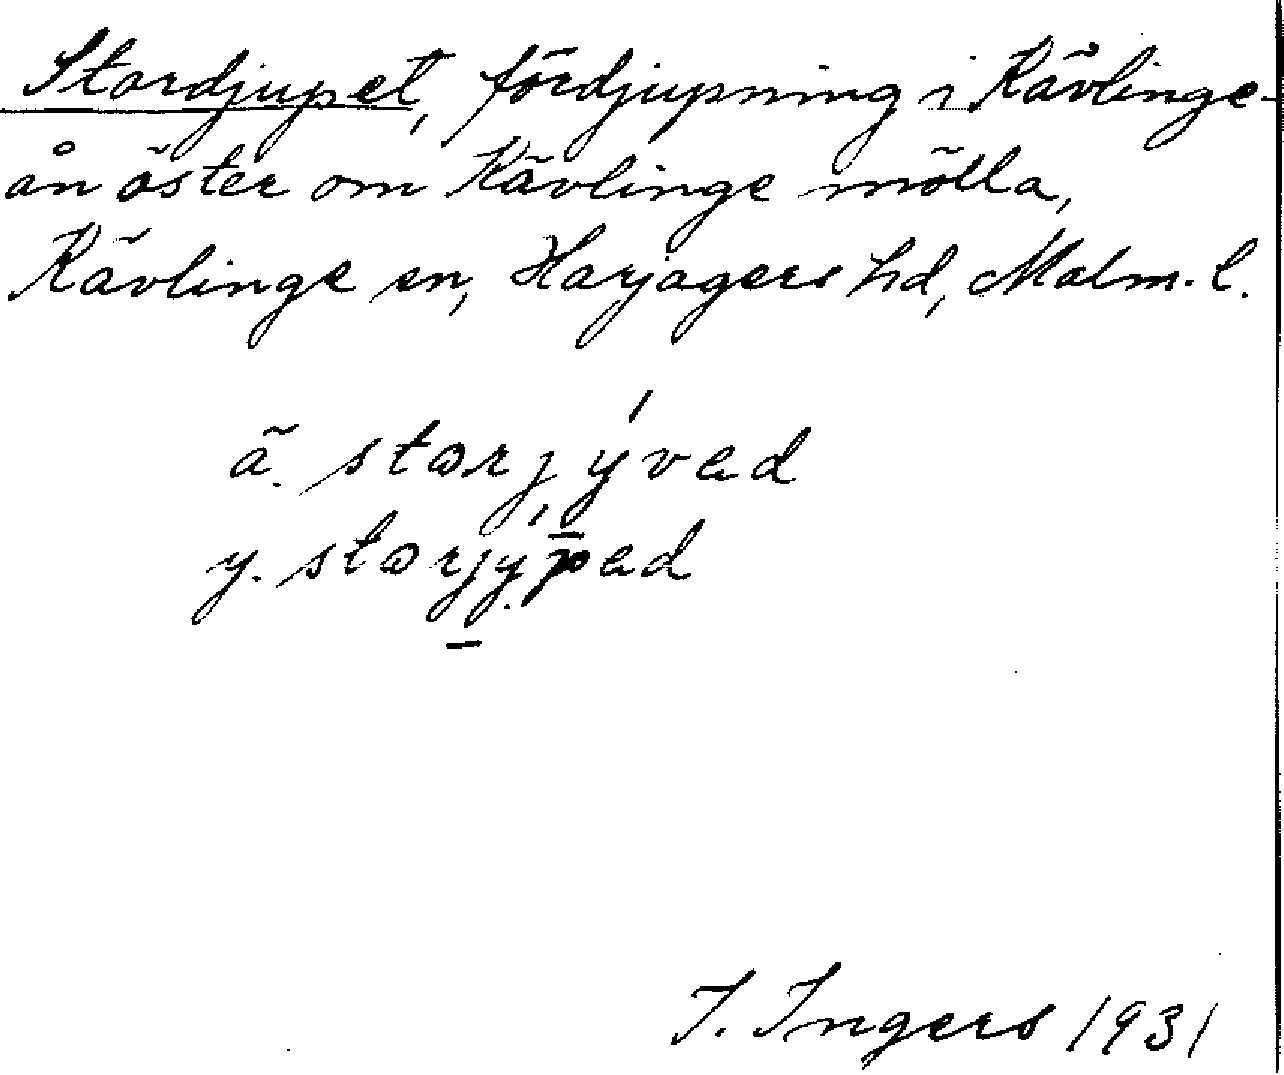 Stordjupet, fördjupning i Kävlinge-
ån öster om Kävlinge mölla,
Kävlinge sn, Harjagers hd, Malm. l.
ä. storjývad
y. storjypad
I. Ingers 1931